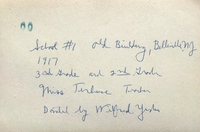 School #1 Old Building, Belleville, NJ
1917
3rd Grade and 2nd Grade
Miss Terhune Teacher
Donated by Wilfred